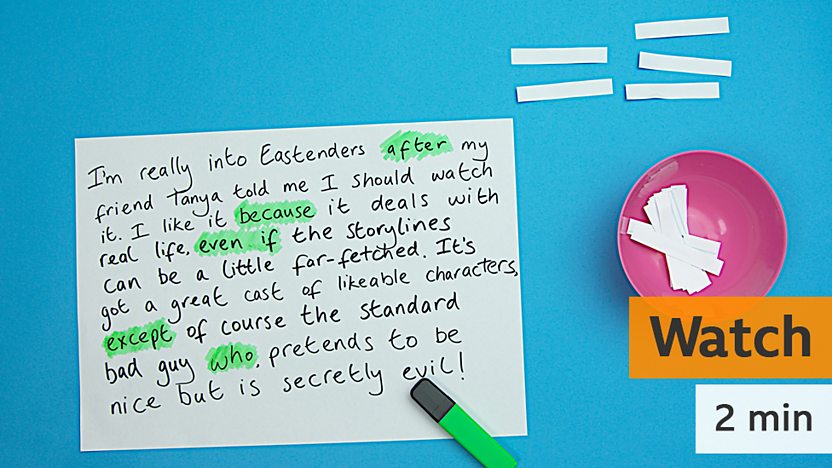 I'm really into Eastenders after my
friend Tanya told me I should watch
it. I like it because it deals with
real life, even if the storylines
can be a little far-fetched. It's
got a great cast of likeable characters,
except of course the standard
bad guy who, pretends to be
nice but is secretly evil!
Watch
2 min